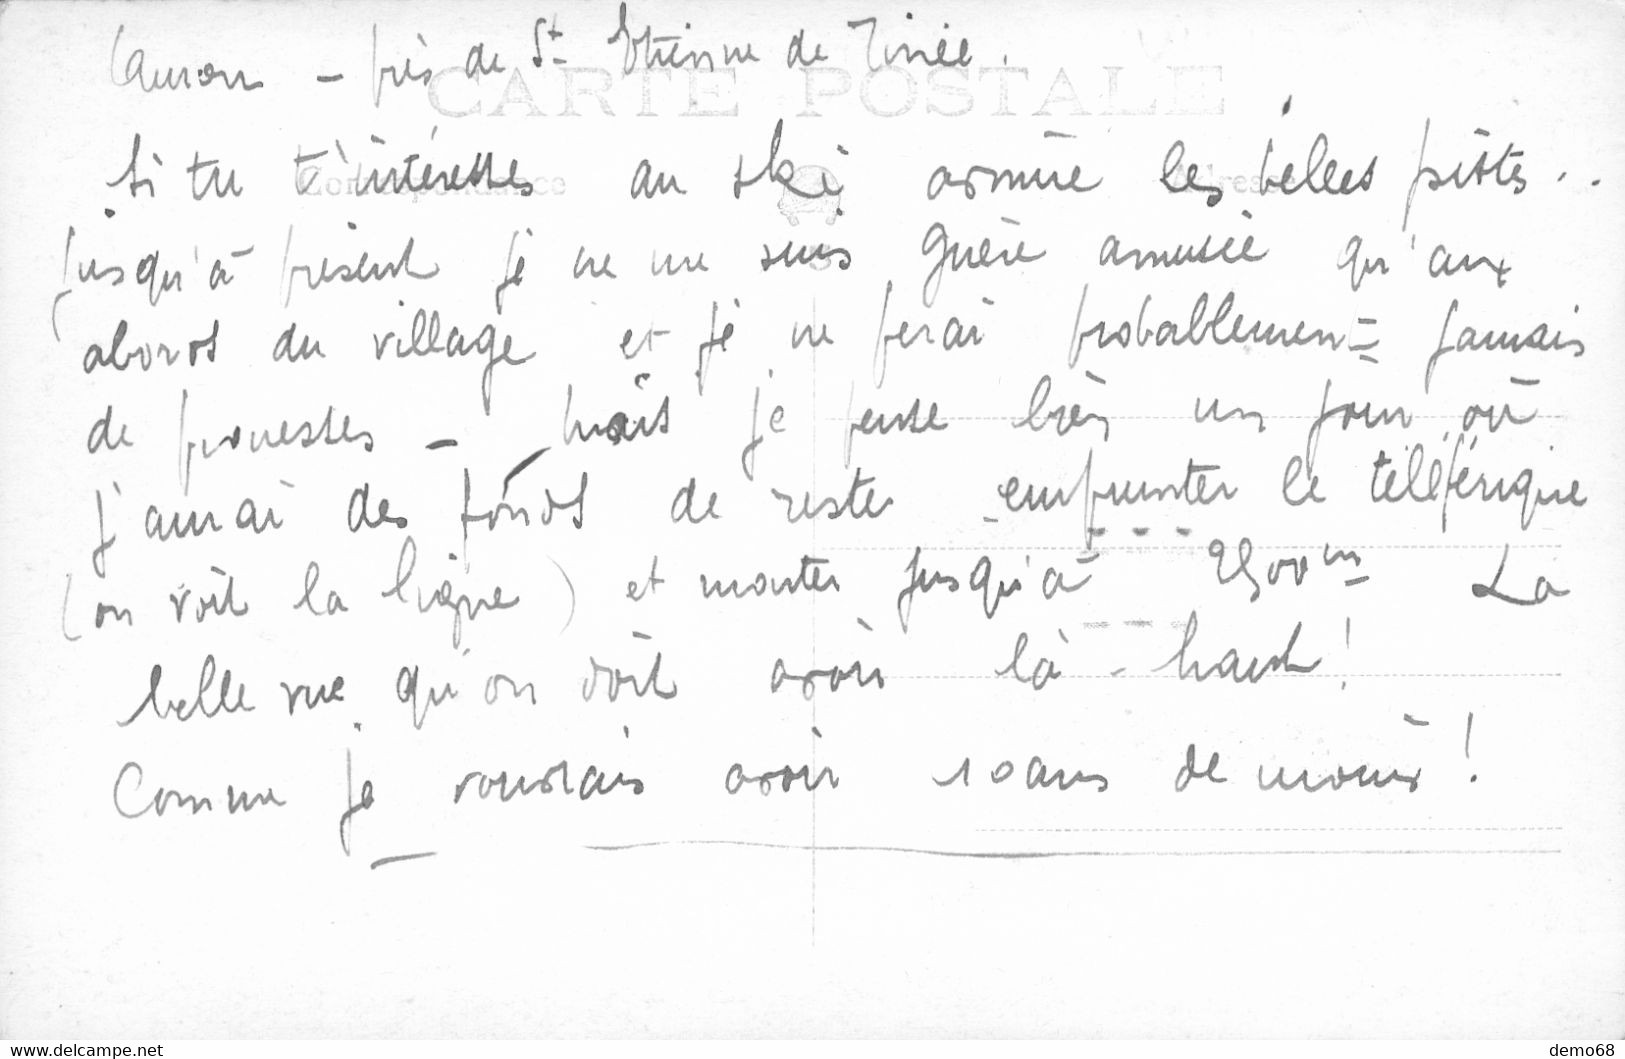 Auron - près de St Etienne de Tinée.
CARTE POSTALE
Correspondance
Adresse
Si tu t'intéresses au ski admire les belles pistes..
Jusqu'à présent je ne me suis guère amusée qu'aux
abords du village et je ne ferai probablement jamais
de prouesses - mais je pense bien un jour où
j'aurai des fonds de reste emprunter le téléférique
(on voit la ligne) et monter jusqu'à 2500m La
belle vue qu'on doit avoir là-haut!
Comme je voudrais avoir 10 ans de moins!
delcampe.net
demo68